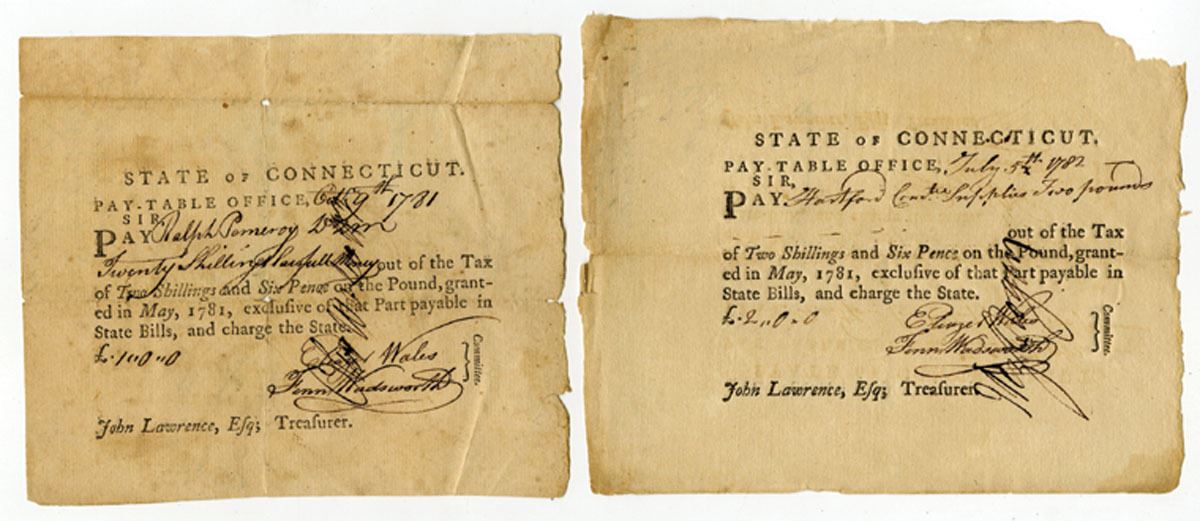 STATE OF CONNECTICUT.
PAY-TABLE OFFICE, Octr 9th 1781
SIR,
PAY Ralph Pomeroy DQM
Twenty Shillings Lawfull Money out of the Tax
of Two Shillings and Six Pence on the Pound, grant-
ed in May, 1781, exclusive of that Part payable in
State Bills, and charge the State.
£.1"0"0
Eleazr Wales
Fenn Wadsworth
Committee.
John Lawrence, Esq; Treasurer.
STATE OF CONNECTICUT.
PAY-TABLE OFFICE, July 5th 1782
SIR,
PAY Hartford Supplies Two pounds
out of the Tax
of Two Shillings and Six Pence on the Pound, grant-
ed in May, 1781, exclusive of that Part payable in
State Bills, and charge the State.
£.2"0"0
Eleazer Wales
Fenn Wadsworth
Committee.
John Lawrence, Esq; Treasurer.